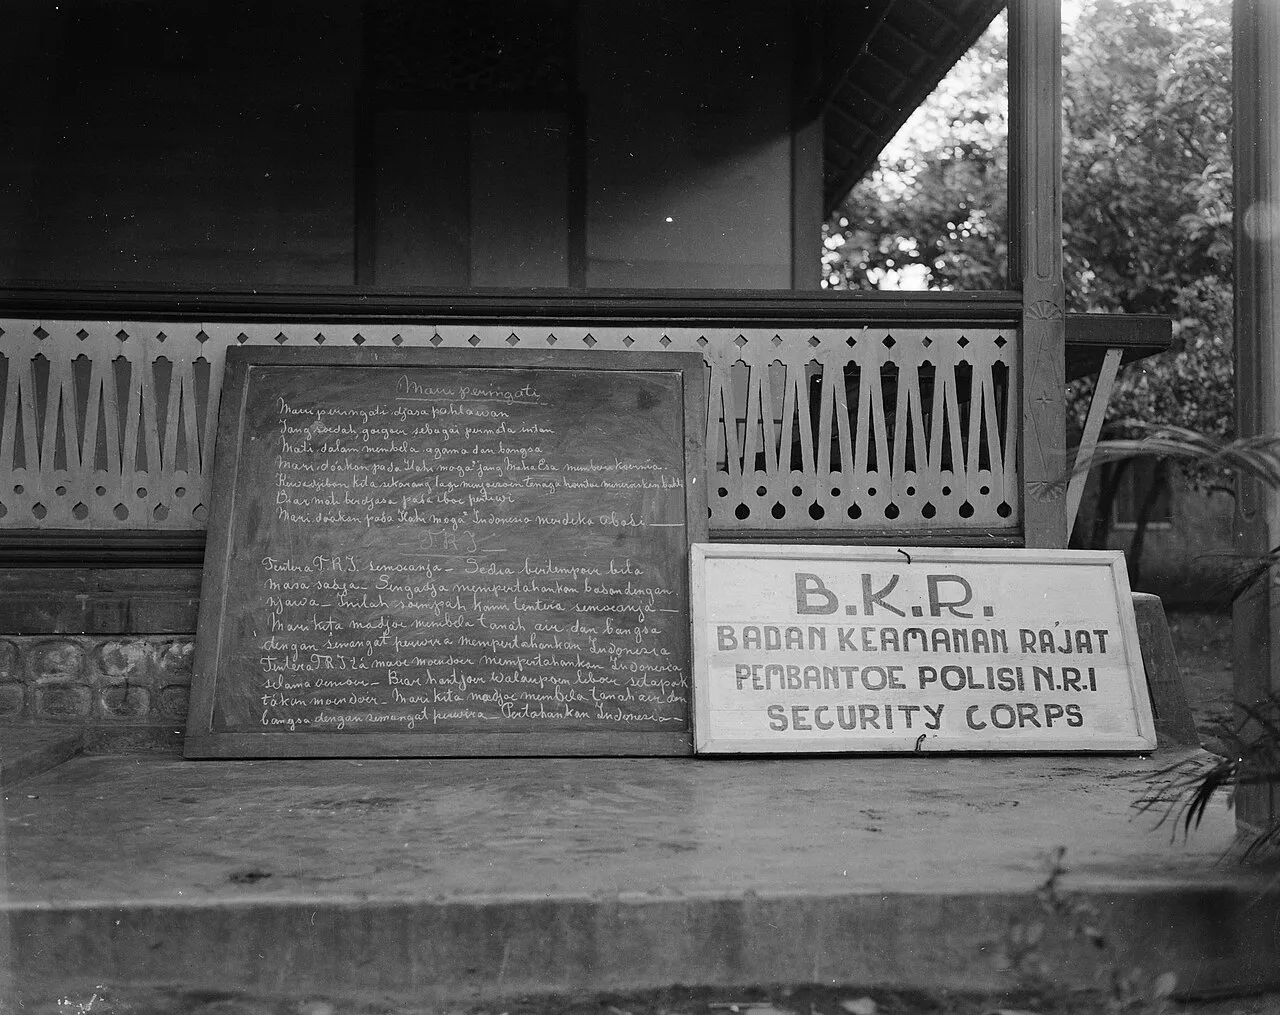 Mari peringati
Mari peringati djasa pahlawan
Jang soedah goegoer sebagai permata intan
Mati dalam membela agama dan bangsa
Mari do'akan pada Ilahi moga² jang Maha Esa memberi koernia
Kewadjiban kita sekarang lagi tenaga
Biar mati berdjasa pada iboe pertiwi
Mari do'akan pada Ilahi moga² Indonesia merdeka abadi
T.R.I.
Tentera T.R.I. semoeanja – Sedia bertempoer bila
masa sadja – Sengadja mempertahankan badan dengan
njawa – Inilah soempah kami tentera semoeanja –
Mari kita madjoe membela tanah air dan bangsa
dengan semangat perwira mempertahankan Indonesia
Tentera T.R.I. ta' maoe moendoer mempertahankan Indonesia
selama oemoer – Biar hantjoer walaupoen leboer setapak
ta'kan moendoer – Mari kita madjoe membela tanah air dan
bangsa dengan semangat perwira – Pertahankan Indonesia –
B.K.R.
BADAN KEAMANAN RA'JAT
PEMBANTOE POLISI N.R.I
SECURITY CORPS